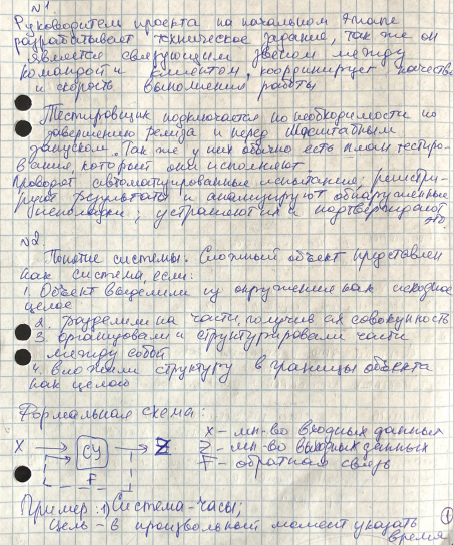 №1
Руководитель проекта на начальном этапе
разрабатывает техническое задание, так же он
является связующим звеном между
командой и клиентом, координирует качество
и скорость выполнения работы
Тестировщик подключается по необходимости по
завершению релиза и перед масштабным
запуском. Так же у них обычно есть план тестиро-
вания, который они исполняют
Проводят автоматизированные испытания; регистри-
руют результаты и анализируют обнаруженные
неполадки; устраняют их и подтверждают
это.
№2
Понятие системы. Сложный объект представлен
как система, если:
1. Объект выделили из окружения как исходное
целое
2. разделили на части, получив их совокупность
3. организовали и структурировали части
между собой
4. вложили структуру в границы объекта
как целого
Формальная схема:
X СУ Z
F
X - мн-во входных данных
Z - мн-во выходных данных
F - обратная связь
Пример: 1) Система - часы;
Цель - в произвольный момент указать
время
1